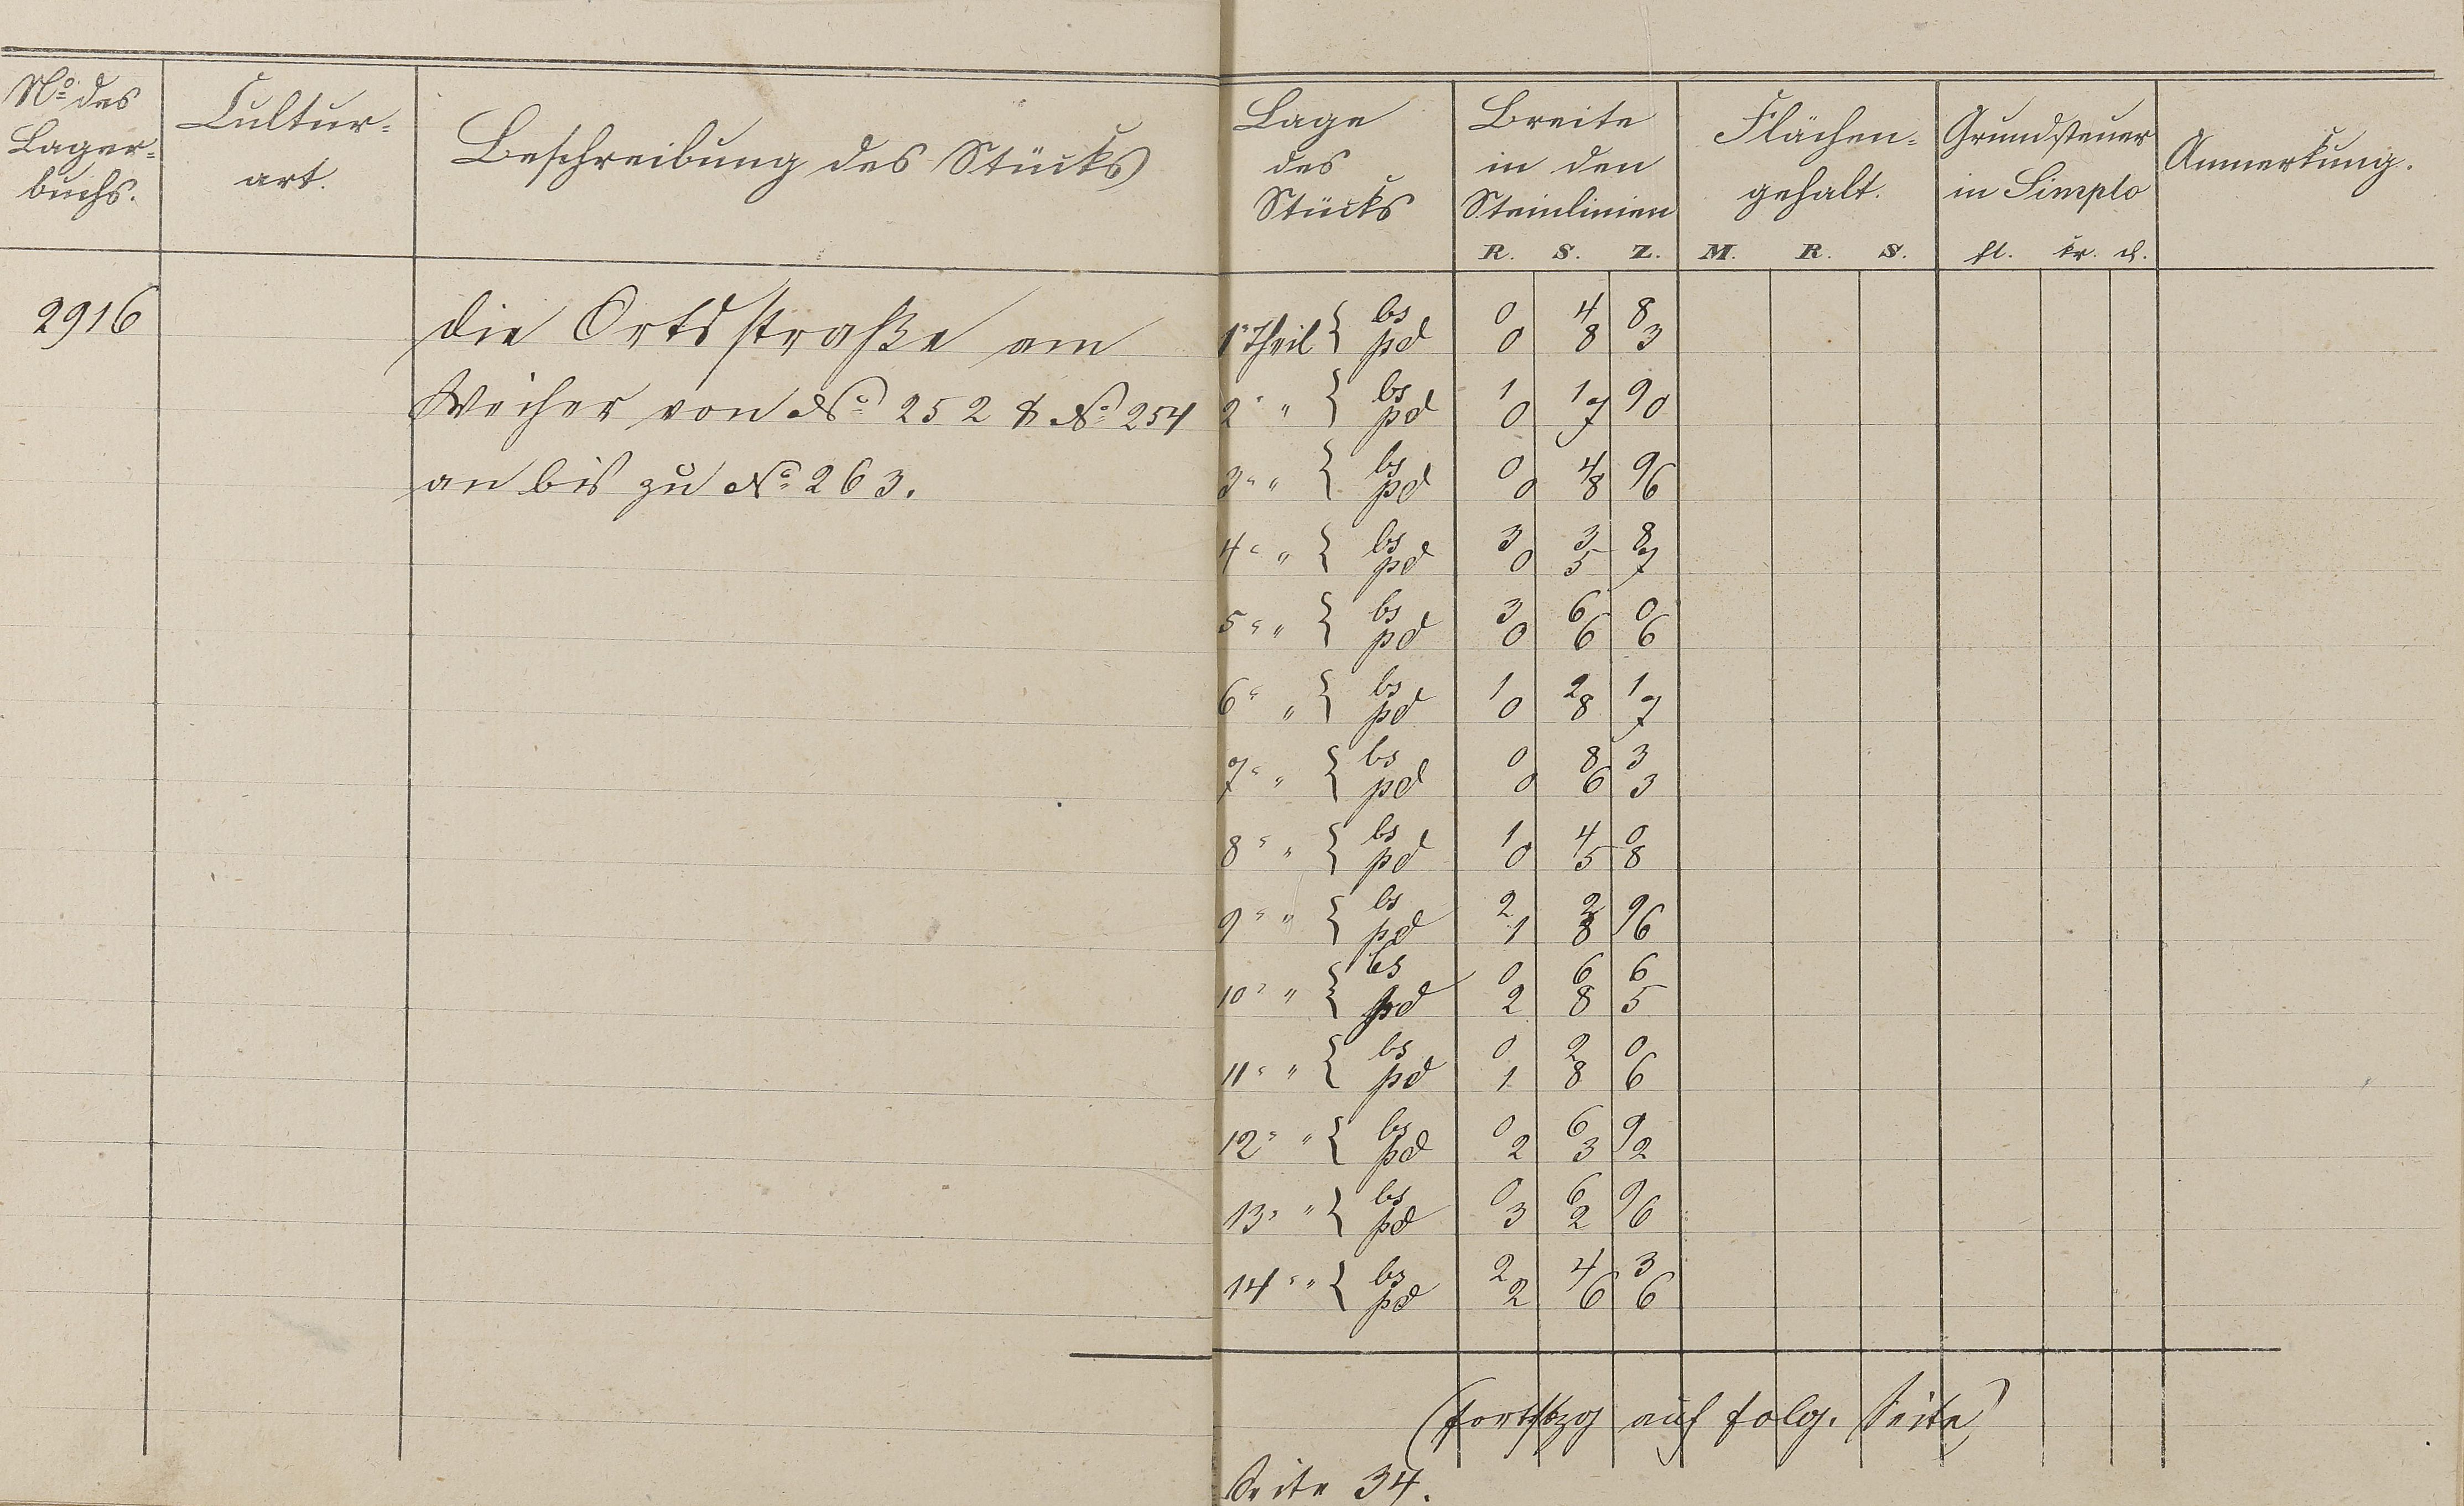 No des Lager= buchs.
Cultur= art.
Beschreibung des Stücks
Lage des Stücks
Breite in den Steinlinien
R. S. Z.
Flächen= gehalt.
M. R. S.
Grundsteuer in Simplo
fl. kr. d.
Anmerkung.
2916
die Ortsstraße am
Weiher von No 252 & No 254
an bis zu No 263.
1r Theil { bs 0 4 8
pd 0 8 3
2" " { bs 1 1 9
pd 0 7 0
3" " { bs 0 4 9
pd 0 8 6
4" " { bs 3 3 8
pd 0 5 7
5" " { bs 3 6 0
pd 0 6 6
6" " { bs 1 2 1
pd 0 8 7
7" " { bs 0 8 3
pd 0 6 3
8" " { bs 1 4 0
pd 0 5 8
9" " { bs 2 2 9
pd 1 8 6
10" " { bs 0 6 6
pd 2 8 5
11" " { bs 0 2 0
pd 1 8 6
12" " { bs 0 6 9
pd 2 3 2
13" " { bs 0 6 9
pd 3 2 6
14" " { bs 2 4 3
pd 2 6 6
(Fortstzg auf folg. Seite)
Seite 34.